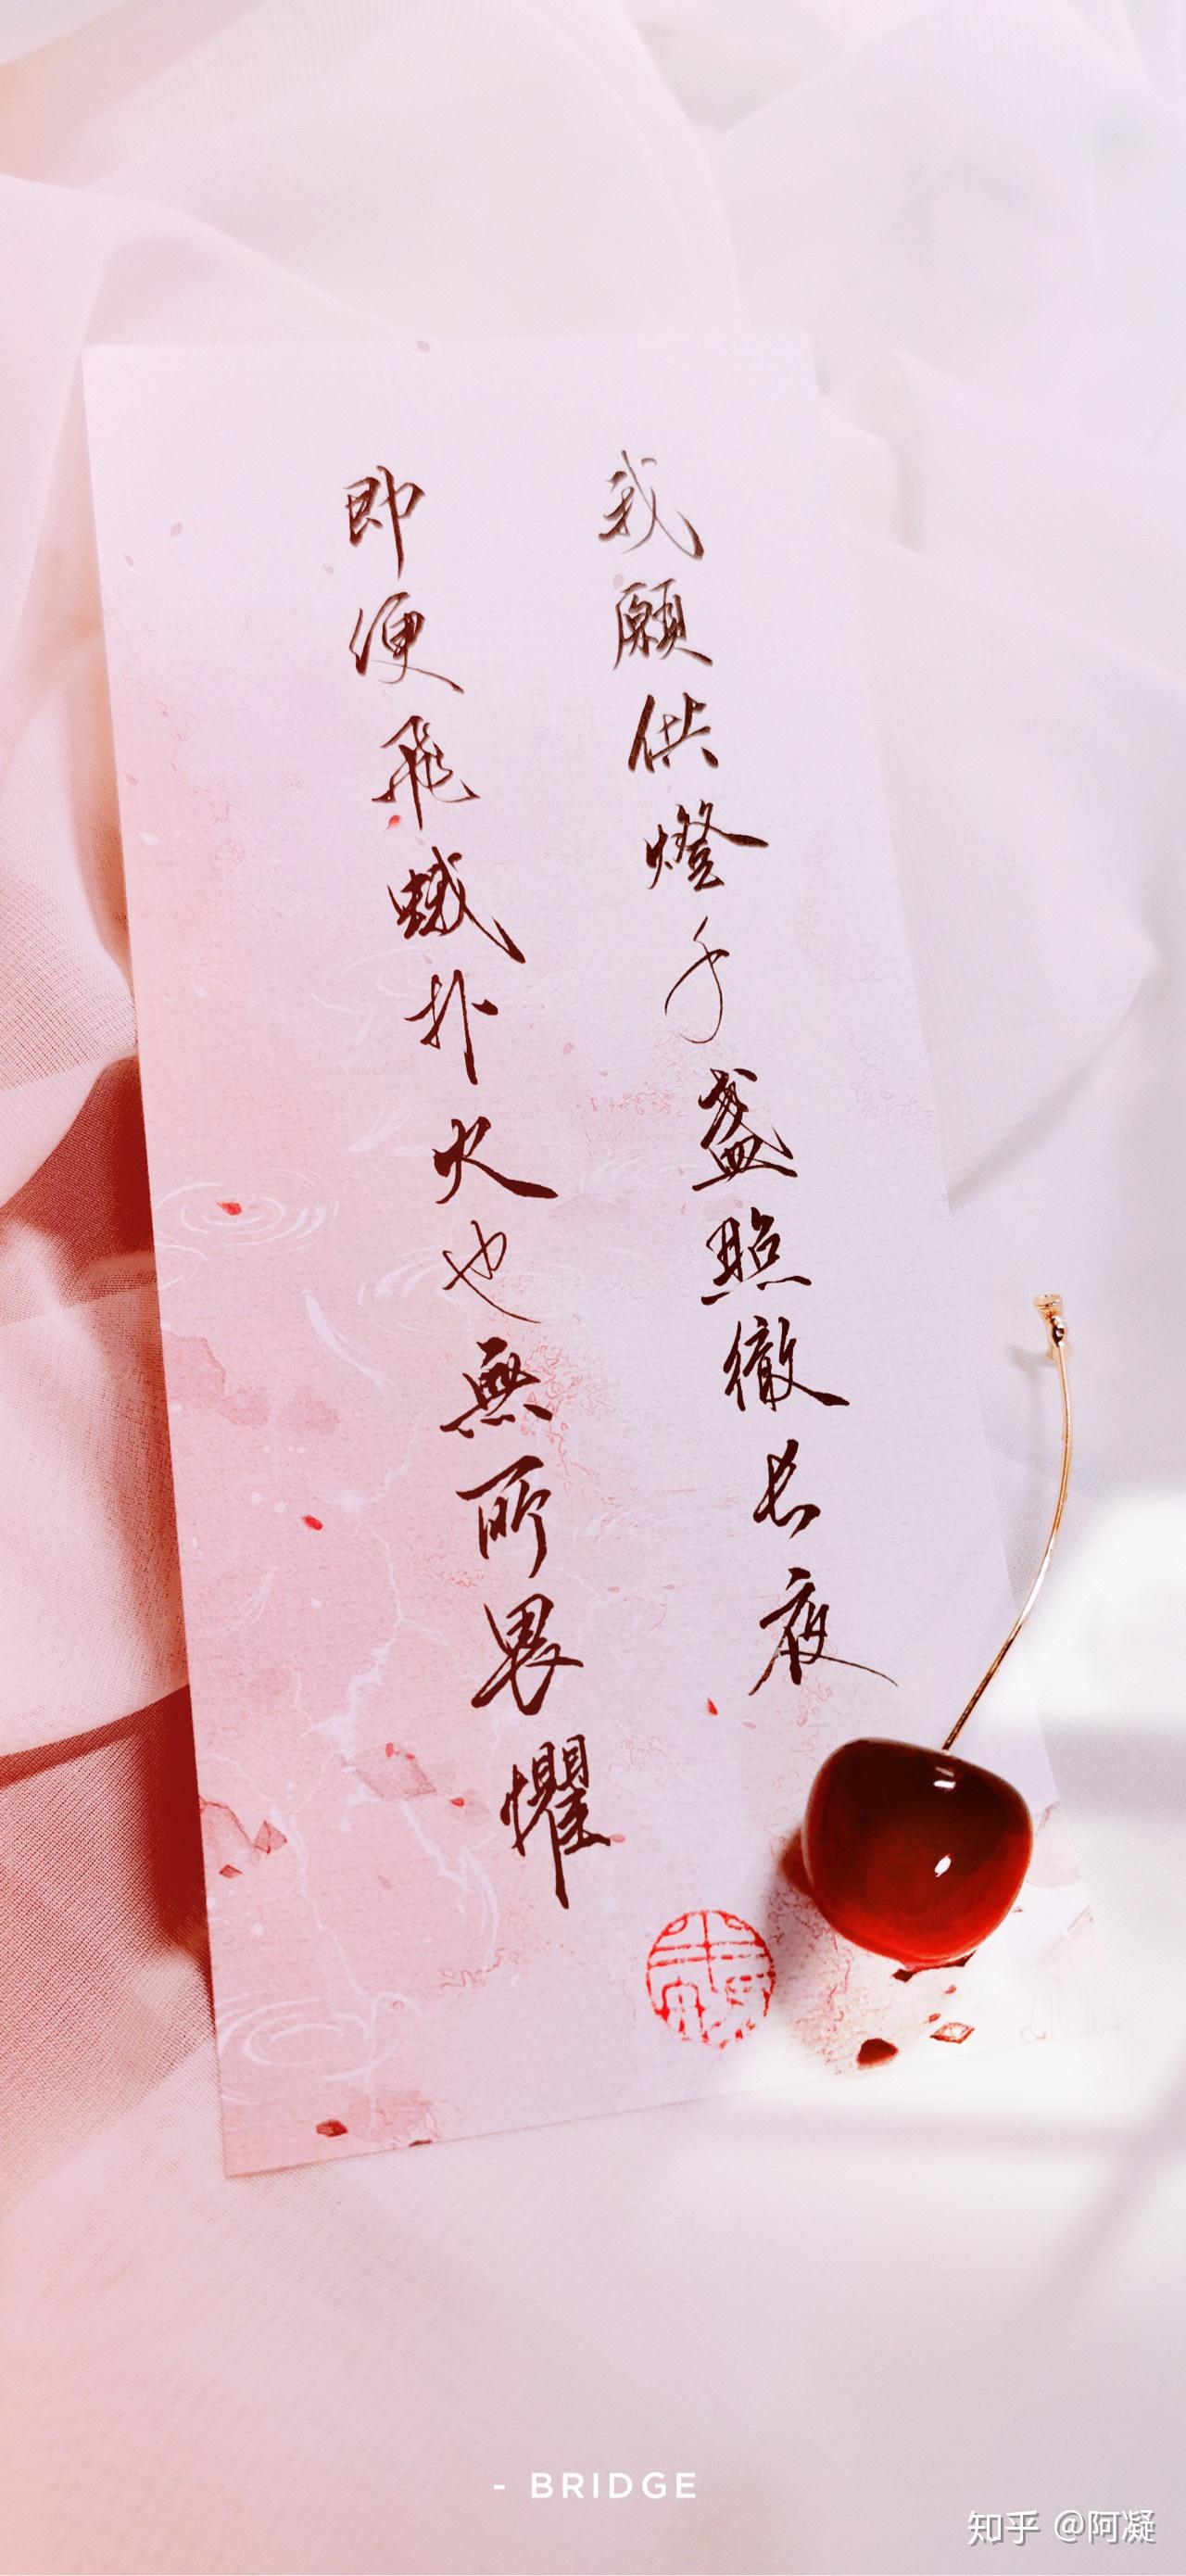 我願供燈千盞照徹長夜
即便飛蛾扑火也無所畏懼
- BRIDGE
知乎 @阿凝